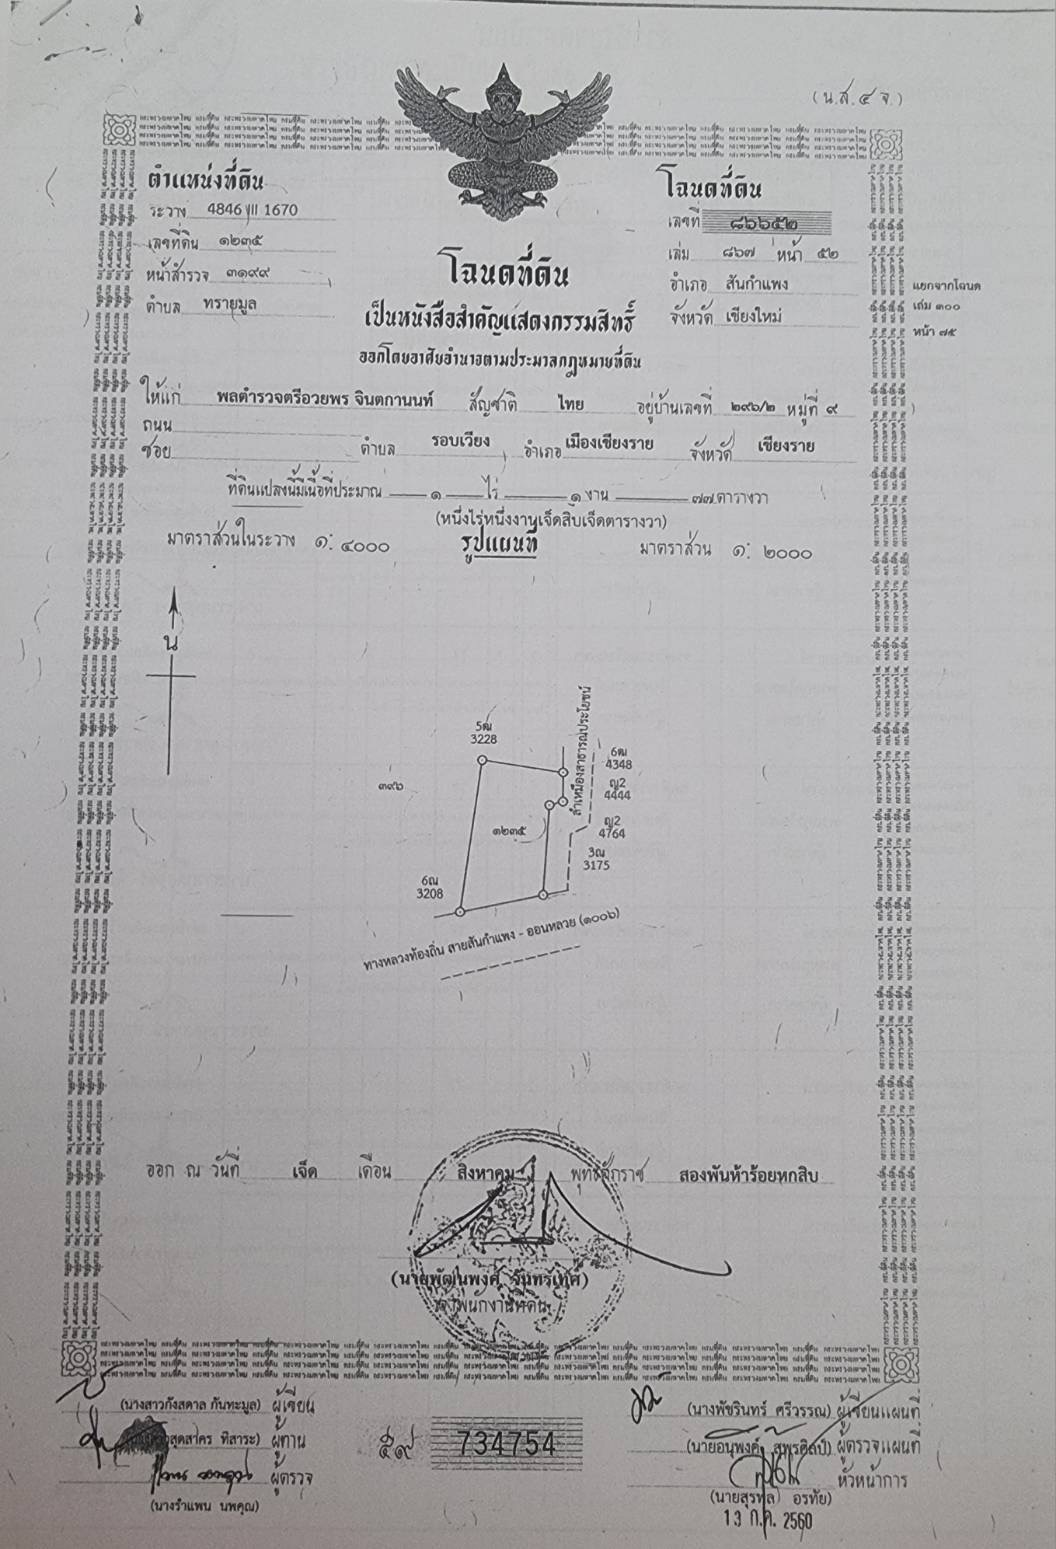 (น.ส. ๔ จ.)
ตำแหน่งที่ดิน
ระวาง 4846 III 1670
เลขที่ดิน ๑๒๓๕
หน้าสำรวจ ๓๑๙๙
ตำบล ทรายมูล
โฉนดที่ดิน
เลขที่ ๘๖๖๕๒
เล่ม ๘๖๗ หน้า ๕๒
อำเภอ สันกำแพง
จังหวัด เชียงใหม่
แยกจากโฉนด
เล่ม ๓๐๐
หน้า ๗๕
โฉนดที่ดิน
เป็นหนังสือสำคัญแสดงกรรมสิทธิ์
ออกโดยอาศัยอำนาจตามประมวลกฎหมายที่ดิน
ให้แก่ พลตำรวจตรีอวยพร จินตกานนท์ สัญชาติ ไทย อยู่บ้านเลขที่ ๒๙๖/๒ หมู่ที่ ๙
ถนน
ซอย ตำบล รอบเวียง อำเภอ เมืองเชียงราย จังหวัด เชียงราย
ที่ดินแปลงนี้มีเนื้อที่ประมาณ ๑ ไร่ ๑ งาน ๗๗ ตารางวา
(หนึ่งไร่หนึ่งงานเจ็ดสิบเจ็ดตารางวา)
มาตราส่วนในระวาง ๑: ๔๐๐๐ รูปแผนที่ มาตราส่วน ๑: ๒๐๐๐
น
5ฒ
3228
ลำเหมืองสาธารณประโยชน์
6ฒ
4348
๓๙๖
ญ2
4444
๑๒๓๕
ญ2
4764
3ณ
3175
6ณ
3208
ทางหลวงท้องถิ่น สายสันกำแพง - ออนหลวย (๑๐๐๖)
ออก ณ วันที่ เจ็ด เดือน สิงหาคม พุทธศักราช สองพันห้าร้อยหกสิบ
(นายพัฒนพงศ์ จันทร์เทศ)
เจ้าพนักงานที่ดิน
(นางสาวกังสดาล กันทะมูล) ผู้เขียน
สุดสาคร ทิสาระ) ผู้ทาน
ผู้ตรวจ
(นางรำแพน นพคุณ)
๕๙ 734754
(นางพัชรินทร์ ศรีวรรณ) ผู้เขียนแผนที่
(นายอนุพงศ์ สุพรศิลป์) ผู้ตรวจแผนที่
หัวหน้าการ
(นายสุรพล อรทัย)
13 ก.ค. 2560